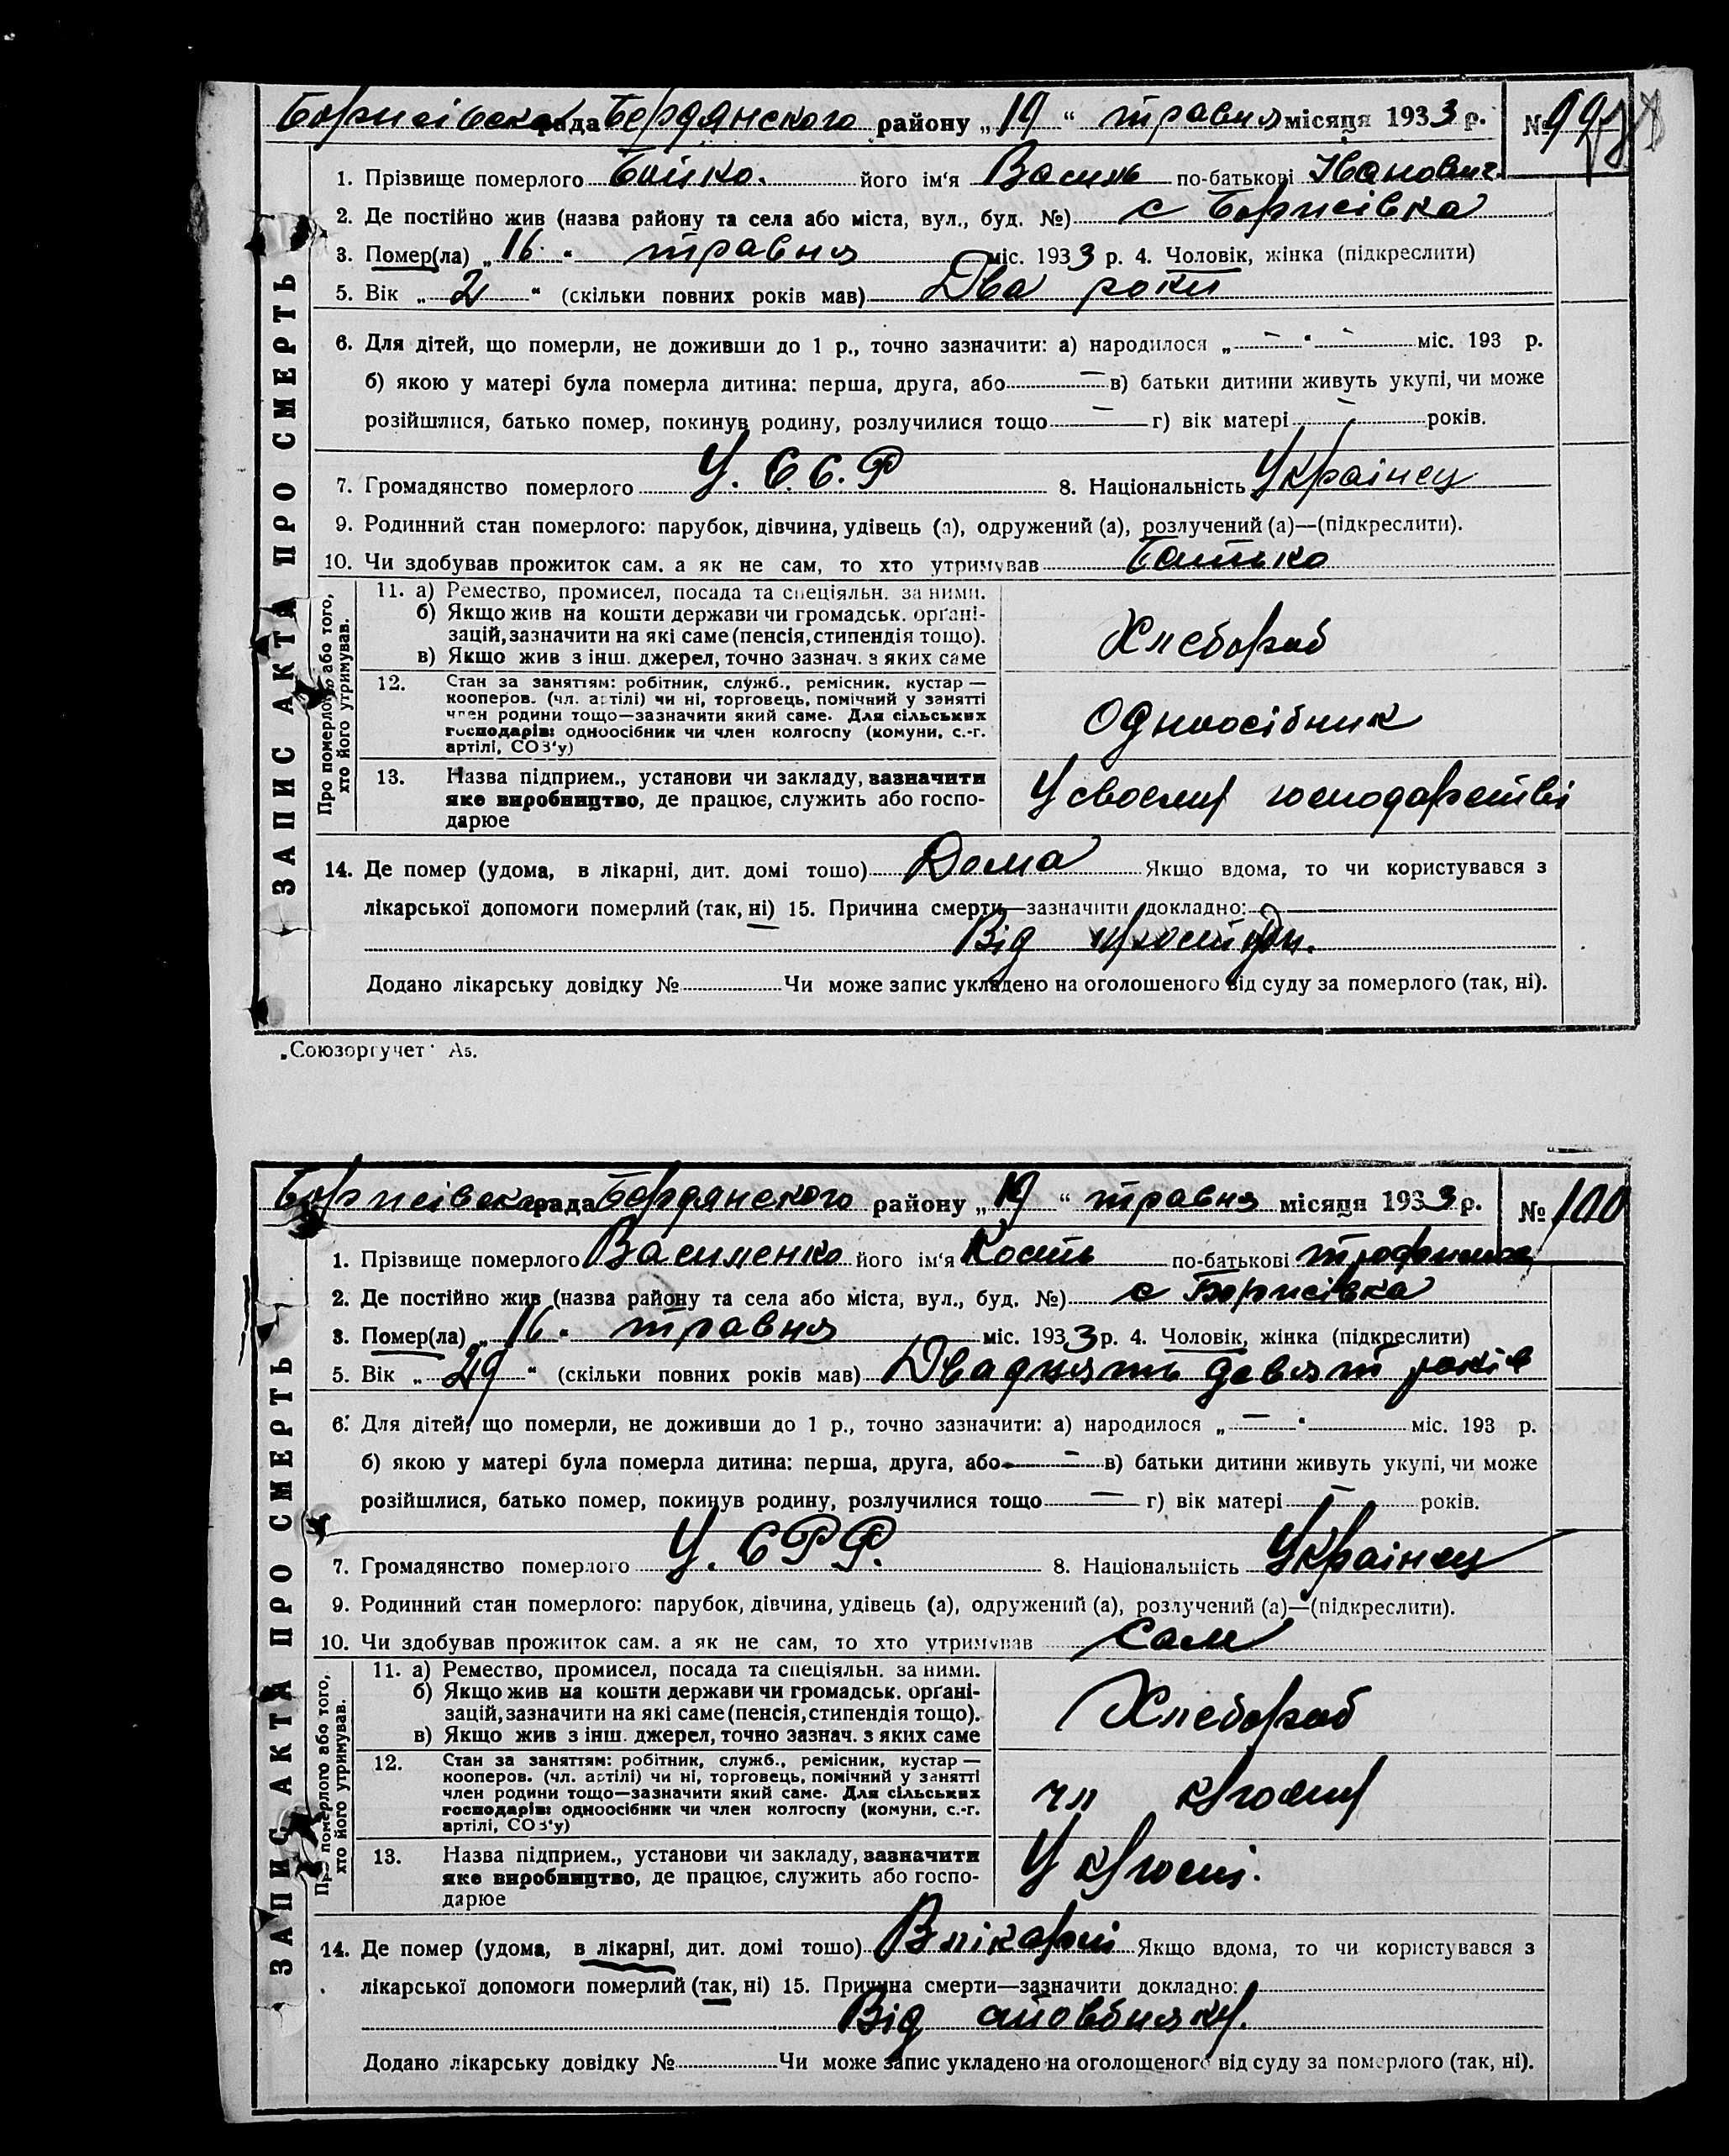 Борисівска рада Бердянского району „19“ травня місяця 1933 р. № 99
ЗАПИС АКТА ПРО СМЕРТЬ
1. Прізвище померлого Бойко. його ім'я Василь по-батькові Іванович
2. Де постійно жив (назва району та села або міста, вул., буд. №) с Борисівка
3. Помер(ла) „16“ травня міс. 1933 р. 4. Чоловік, жінка (підкреслити)
5. Вік „2“ (скільки повних років мав) Два роки
6. Для дітей, що померли, не доживши до 1 р., точно зазначити: а) народилося „—“ — міс. 193 р.
б) якою у матері була померла дитина: перша, друга, або — в) батьки дитини живуть укупі, чи може
розійшлися, батько помер, покинув родину, розлучилися тощо — г) вік матері — років.
7. Громадянство померлого У.С.С.Р 8. Національність Украінец
9. Родинний стан померлого: парубок, дівчина, удівець (а), одружений (а), розлучений (а)—(підкреслити).
10. Чи здобував прожиток сам. а як не сам, то хто утримував Батько
Про померлого або того,
хто його утримував.
11. а) Ремество, промисел, посада та спеціяльн. за ними.
б) Якщо жив на кошти держави чи громадськ. орґані-
зацій, зазначити на які саме (пенсія, стипендія тощо).
в) Якщо жив з інш. джерел, точно зазнач. з яких саме
Хлебораб
12. Стан за заняттям: робітник, служб., ремісник, кустар —
кооперов. (чл. артілі) чи ні, торговець, помічний у занятті
член родини тощо—зазначити який саме. Для сільських
господарів: одноосібник чи член колгоспу (комуни, с.-г.
артілі, СОЗ'у)
Одноосібник
13. Назва підприєм., установи чи закладу, зазначити
яке виробництво, де працює, служить або госпо-
дарює
У своєму господарстві
14. Де помер (удома, в лікарні, дит. домі тошо) Дома Якщо вдома, то чи користувався з
лікарської допомоги померлий (так, ні) 15. Причина смерти—зазначити докладно:
Від
Додано лікарську довідку № Чи може запис укладено на оголошеного від суду за померлого (так, ні).
„Союзоргучет“ А5.
Борисівска рада Бердянского району „19“ травня місяця 1933 р. № 100
ЗАПИС АКТА ПРО СМЕРТЬ
1. Прізвище померлого Василенко його ім'я Кость по-батькові
2. Де постійно жив (назва району та села або міста, вул., буд. №) с Борисівка
3. Помер(ла) „16“ травня міс. 1933 р. 4. Чоловік, жінка (підкреслити)
5. Вік „29“ (скільки повних років мав) Двадцять девят років
6. Для дітей, що померли, не доживши до 1 р., точно зазначити: а) народилося „—“ міс. 193 р.
б) якою у матері була померла дитина: перша, друга, або — в) батьки дитини живуть укупі, чи може
розійшлися, батько помер, покинув родину, розлучилися тощо — г) вік матері — років.
7. Громадянство померлого У.СРР. 8. Національність Украінец
9. Родинний стан померлого: парубок, дівчина, удівець (а), одружений (а), розлучений (а)—(підкреслити).
10. Чи здобував прожиток сам. а як не сам, то хто утримував Сам
Про померлого або того,
хто його утримував.
11. а) Ремество, промисел, посада та спеціяльн. за ними.
б) Якщо жив на кошти держави чи громадськ. орґані-
зацій, зазначити на які саме (пенсія, стипендія тощо).
в) Якщо жив з інш. джерел, точно зазнач. з яких саме
Хлебораб
12. Стан за заняттям: робітник, служб., ремісник, кустар —
кооперов. (чл. артілі) чи ні, торговець, помічний у занятті
член родини тощо—зазначити який саме. Для сільських
господарів: одноосібник чи член колгоспу (комуни, с.-г.
артілі, СОЗ'у)
чл к/госпу
13. Назва підприєм., установи чи закладу, зазначити
яке виробництво, де працює, служить або госпо-
дарює
У к/госпі.
14. Де помер (удома, в лікарні, дит. домі тошо) В лікарні Якщо вдома, то чи користувався з
лікарської допомоги померлий (так, ні) 15. Причина смерти—зазначити докладно:
Від стовбняку.
Додано лікарську довідку № Чи може запис укладено на оголошеного від суду за померлого (так, ні).